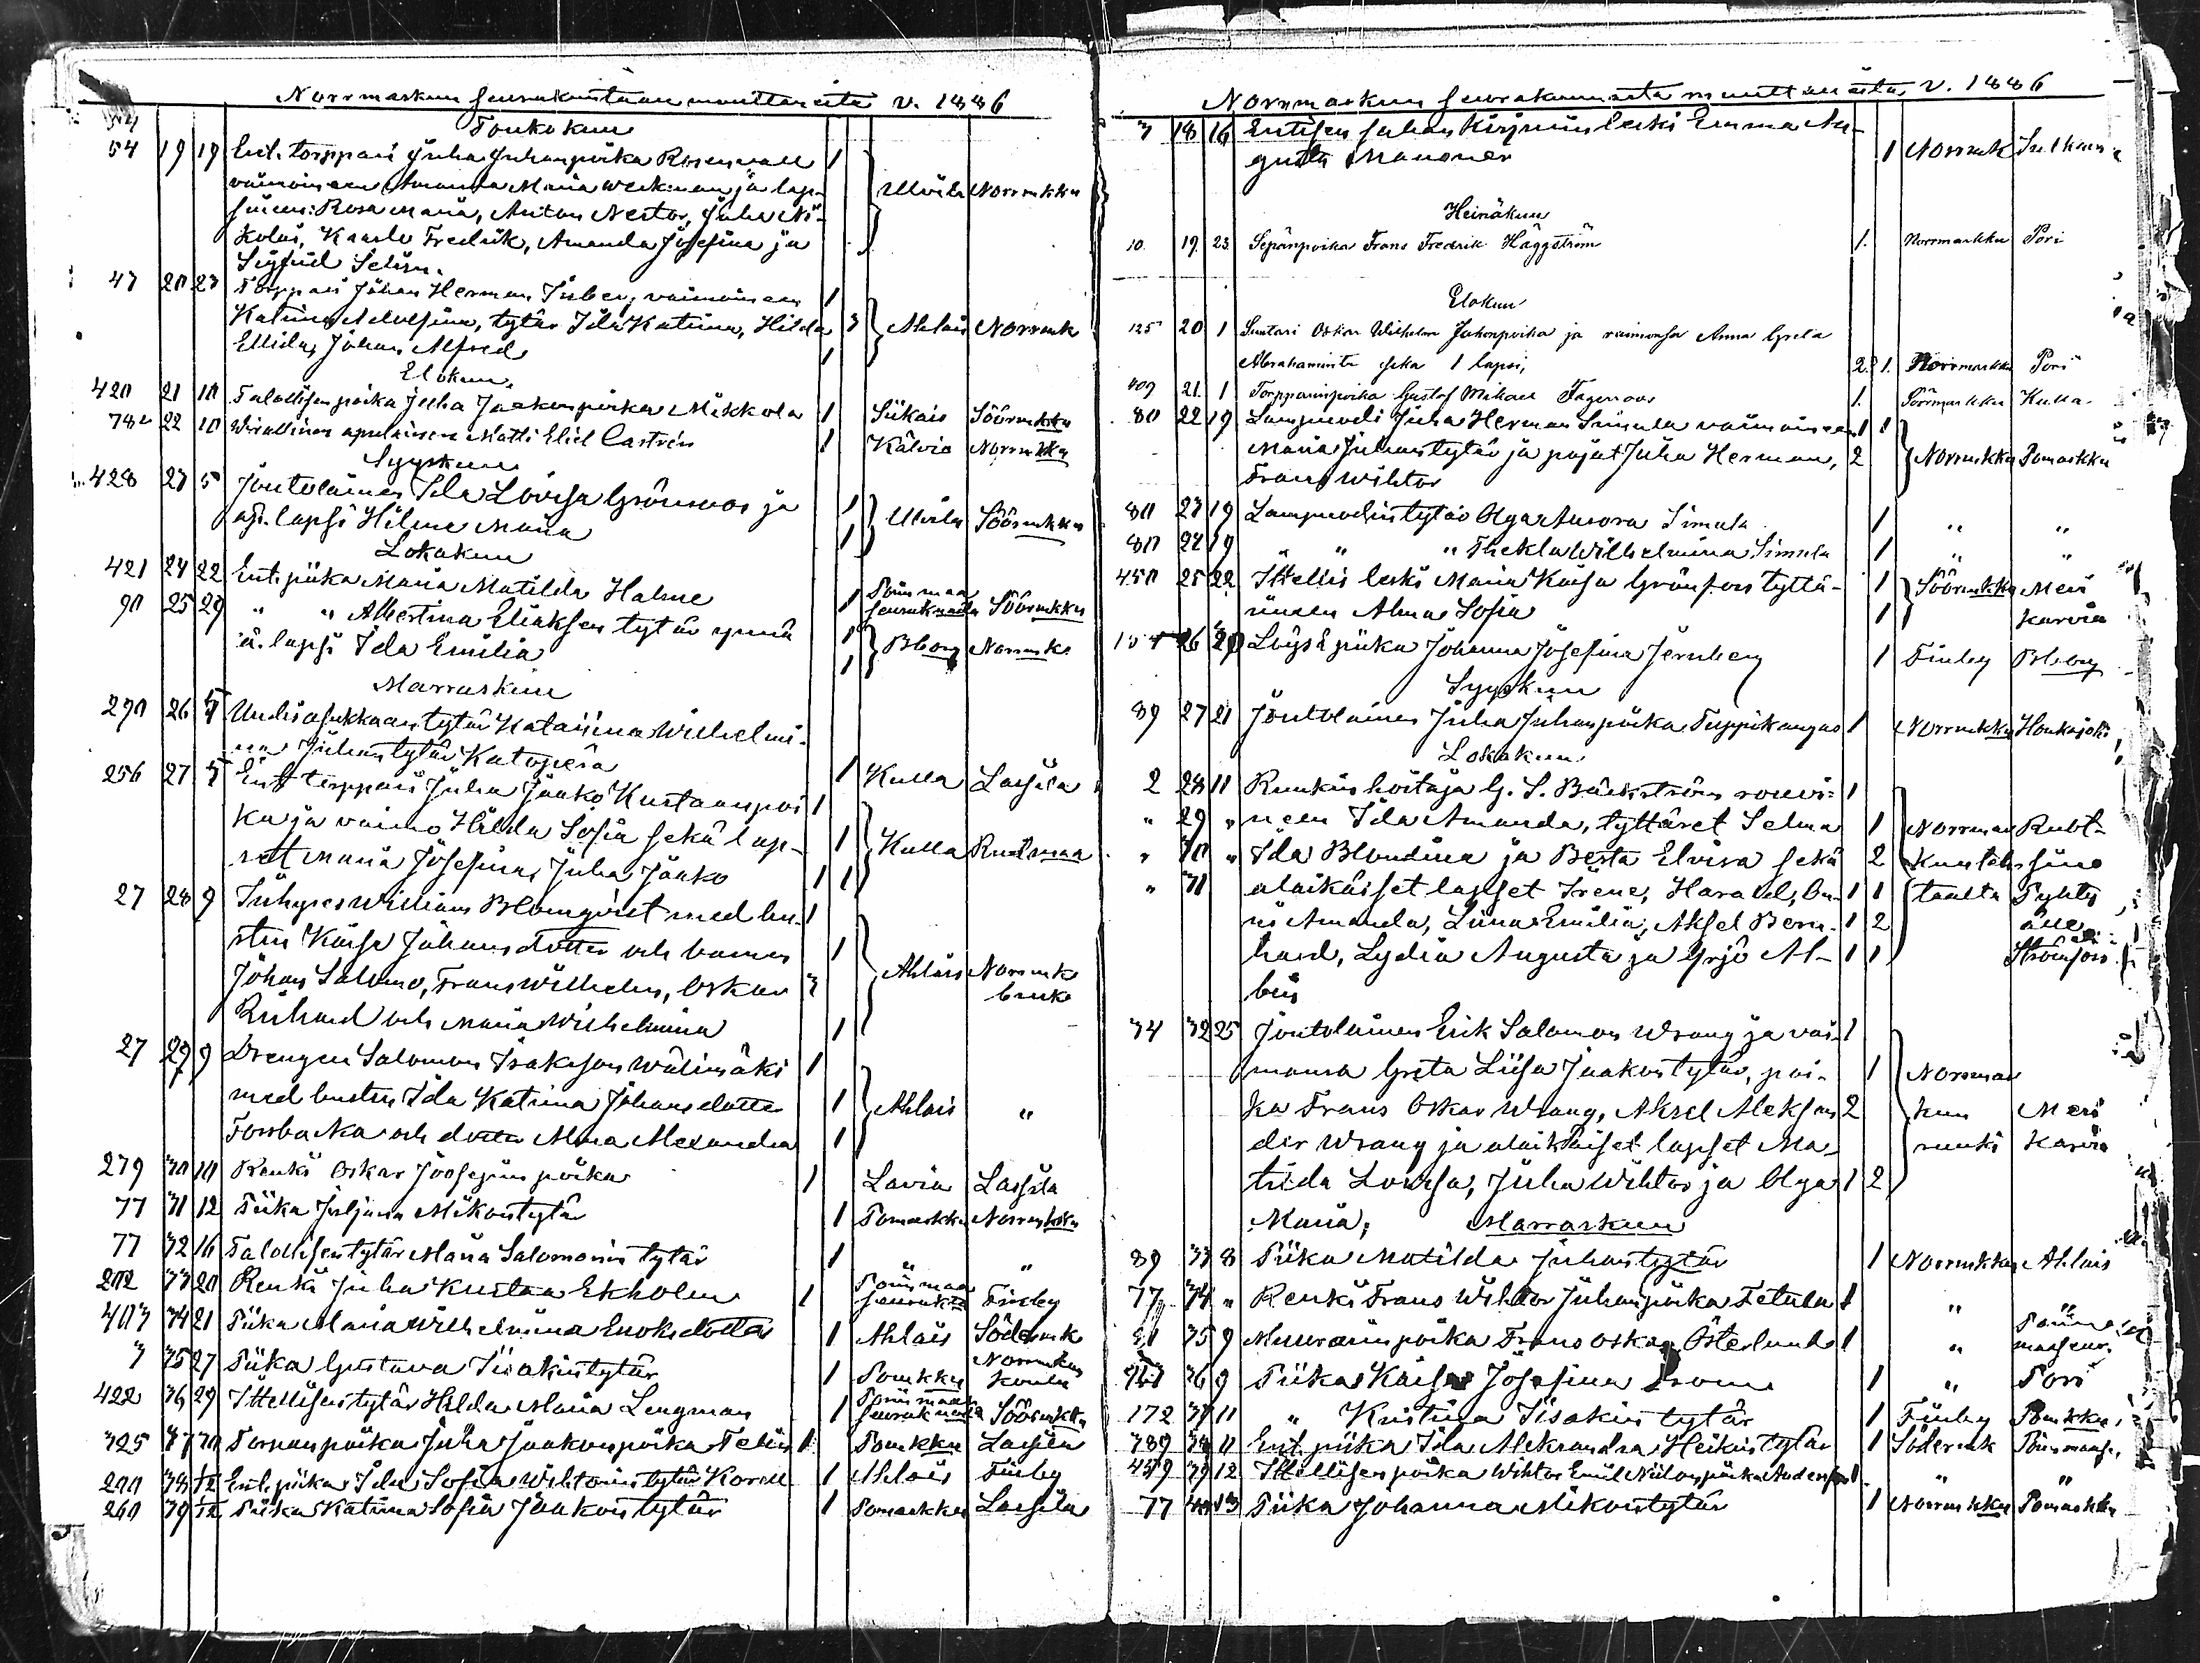 Norrmarkun seurakuntaan muuttaneita v. 1886
Toukokuu
54 19 19 Ent. torppari Juha Juhanpoika Rosenvall 1
vaimoineen Amanda Maria Weckman ja lap-
sineen: Rosa Maria, Anton Nestor, Juha Ni- Ulvila Norrmkku
kolai, Kaarlo Fredrik, Amanda Josefina ja
Sigfrid Selim.
47 20 23 Torppari Johan Herman Inberg vaimoineen 1
Katrina Adolfina, tytär Ida Katrina, Hilda 3 Ahlais Norrmk
Ellida, Johan Alfred 1
Elokuu.
420 21 10 Talollisen poika Juha Jaakonpoika Mikkola 1 Siikais Söörmkku
782 22 10 Wirallinen apulainen Matti Eliel Castrén 1 Kälviä Norrmkku
Syyskuu
428 23 5 Jontolainen Ida Lovisa Grönroos ja 1
ap. lapsi Hilma Maria 1 Ulvila Söörmkku
Lokakuu
421 24 22 Ent. piika Maria Matilda Halme 1 Porin maa seurakunda Söörmkku
90 25 29 " " Albertina Eliaksen tytär ynnä 1
ä. lapsi Ida Emilia 1 Bborg Norrmk.
Marraskuu
290 26 5 Uudisasukkaan tytär Katariina Wilhelmi-
na Juhantytär Katajisia 1 Kulla Lassila
256 27 5 Ent torppari Juha Jaako Kustaanpoi 1
ka ja vaimo Hilda Sofia sekä lap- 1 Kulla Ruutmaa
set Maria Josefina, Juha Jaako 1 1
27 28 9 Inhyses William Blomqvist med hu- 1
stru Kaisa Johansdotter och barnen 1
Johan Salomo, Frans Wilhelm, Oskar 3 Ahlais Norrmk bruk
Richard och Maria Wilhelmina 1
27 29 9 Drengen Salomon Isaksson Wälimäki 1
med hustru Ida Katrina Johansdotter 1 Ahlais "
Forsbacka och dotter Alma Alexandra 1
279 30 10 Renki Oskar Joosepin poika 1 Lavia Lassila
77 31 12 Piika Juljana Mikontytär 1 Pomarkku Norrmkku
77 32 16 Talollisen tytär Maria Salomonin tytär 1 " "
202 33 20 Renki Juha Kustaa Ekholm 1 Porin maa seurakta Finby
403 34 21 Piika Maria Wilhelmina Enoksdotter 1 Ahlais Södermk
3 35 27 Piika Gustava Iisakintytär 1 Pomkku Norrmkun koulu
422 36 29 Itsellisen tytär Hilda Maria Lengman 1 Porin maa seurakunda Söörmkku
325 37 30 Torpan poika Juha Jaakonpoika Felin 1 Pomkku Lassila
200 38 12 Ent. piika Ida Sofia Wihtorin tytär Korell 1 Ahlais Finby
260 39 12 Piika Katrina Sofia Jaakontytär 1 Pomarkku Lassila
Norrmarkun seurakunnasta muuttaneita v. 1886
3 18 16 Entisen Juhan Kirjurin leski Emma Au-
gusta Manoner 1 Norrmk
Heinäkuu
10. 19. 23. Sepänpoika Frans Fredrik Häggström 1. Norrmarkku Pori
Elokuu
125 20 1 Suutari Oskar Wilhelm Juhonpoika ja vaimonsa Anna Greta
Abrahamintr sekä 1 lapsi, 2. 1. Norrmarkku Pori
409 21. 1 Torpparinpoika Gustaf Mikael Fagerroos 1. Söörmarkku Kulla
80 22 19 Lampuodi Juha Herman Simula vaimoineen 1 1
Maria Juhantytär ja pojat Juha Herman, 2 Norrmkku Pomarkku
Frans Wihtor
80 23 19 Lampuodin tytär Olga Aurora Simula 1 " "
80 24 19 " " " Thekla Wilhelmina Simula 1 " "
450 25 22 Itsellis leski Maria Kaisa Grönfors tyttä- 1 Söörmkku Meri
rineen Alma Sofia 1 karvia
26 29 Löysä piika Johanna Josefina Jernberg 1 Finby Bborg
Syyskuu
89 27 21 Jontolainen Juha Juhanpoika Teppikangas 1 Norrmkku Honkajoki
Lokakuu
2 28 11 Ruukin hoitaja G. S. Bäckström rouvi- 1
" 29 " neen Ida Amanda, tyttäret Selma 1 Norrmar Ruot-
" 30 " Ida Blondina ja Berta Elvira sekä 2 kun teh- sino
" 31 alaikäiset lapset Irene, Harald, On- 1 1 taalta Pyhtä
ni Amanda, Liina Emilia, Aksel Bern- 1 2 älle
hard, Lydia Augusta ja Yrjö Al- 1 1 Strömfors
bin
34 32 25 Jontolainen Erik Salomon Wrang ja vai- 1
monsa Greta Liisa Jaakontytär, poi- 1 Norrmar
ka Frans Oskar Wrang, Aksel Aleksan 2 kun Meri
der Wrang ja alaikäiset lapset Ma- ruuki karvia
tilda Lovisa, Juha Wihtor ja Olga 1 2
Maria, Marraskuu
89 33 8 Piika Matilda Juhantytär 1 Norrmkku Ahlais
77 34 " Renki Frans Wihtor Juhanpoika Tetula 1 " "
35 9 Muurarin poika Frans Oskar Österlund 1 " Porin maaseur.
36 9 Piika Kaisa Josefina 1 " Pori
172 37 11 " Kristiina Iisakin tytär 1 Finby Pomkku
389 38 11 Ent. piika Ida Aleksandra Heikintytär 1 Södermk Porin maas.
459 39 12 Itsellisen poika Wihtor Emil Niilonpoika Anderson 1 " "
77 40 13 Piika Johanna Mikontytär 1 Norrmkku Pomarkku